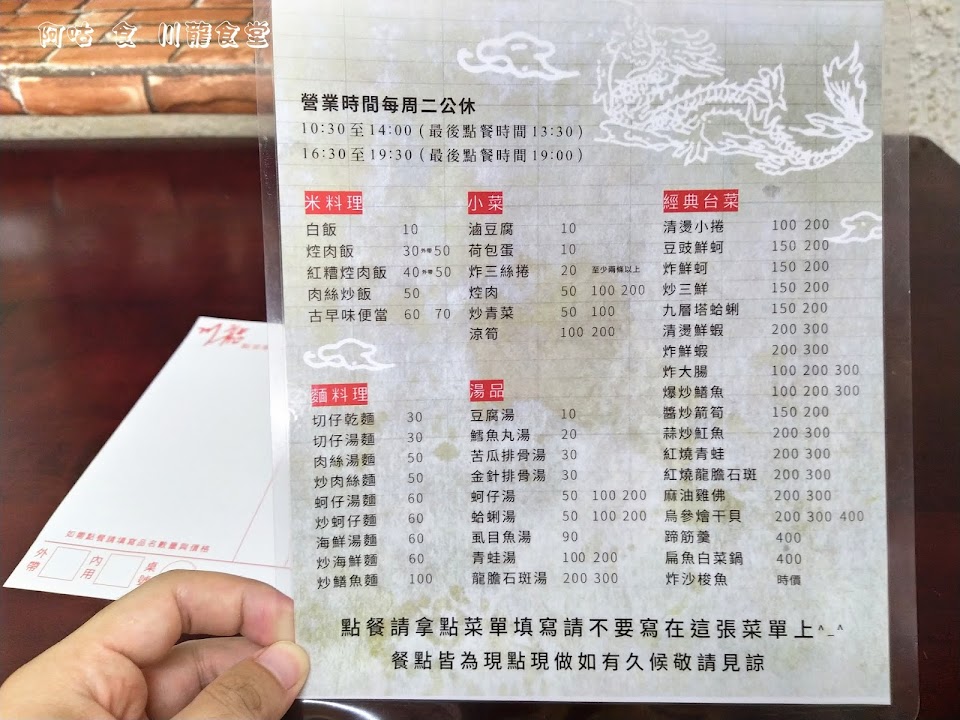 阿咕 食 川龍食堂
營業時間每周二公休
10:30至14:00（最後點餐時間13:30）
16:30至19:30（最後點餐時間19:00）
米料理
白飯 10
焢肉飯 30 外帶 50
紅糟焢肉飯 40 外帶 50
肉絲炒飯 50
古早味便當 60 70
麵料理
切仔乾麵 30
切仔湯麵 30
肉絲湯麵 50
炒肉絲麵 50
蚵仔湯麵 60
炒蚵仔麵 60
海鮮湯麵 60
炒海鮮麵 60
炒鱔魚麵 100
小菜
滷豆腐 10
荷包蛋 10
炸三絲捲 20 至少兩條以上
焢肉 50 100 200
炒青菜 50 100
涼筍 100 200
湯品
豆腐湯 10
鱈魚丸湯 20
苦瓜排骨湯 30
金針排骨湯 30
蚵仔湯 50 100 200
蛤蜊湯 50 100 200
虱目魚湯 90
青蛙湯 100 200
龍膽石斑湯 200 300
經典台菜
清燙小捲 100 200
豆豉鮮蚵 150 200
炸鮮蚵 150 200
炒三鮮 150 200
九層塔蛤蜊 150 200
清燙鮮蝦 200 300
炸鮮蝦 200 300
炸大腸 100 200 300
爆炒鱔魚 100 200 300
醬炒箭筍 150 200
蒜炒魟魚 200 300
紅燒青蛙 200 300
紅燒龍膽石斑 200 300
麻油雞佛 200 300
烏參燴干貝 200 300 400
蹄筋羹 400
扁魚白菜鍋 400
炸沙梭魚 時價
點餐請拿點菜單填寫請不要寫在這張菜單上^_^
餐點皆為現點現做如有久候敬請見諒
川龍
如需點餐請填寫品名數量與價格
外帶 內用 桌號